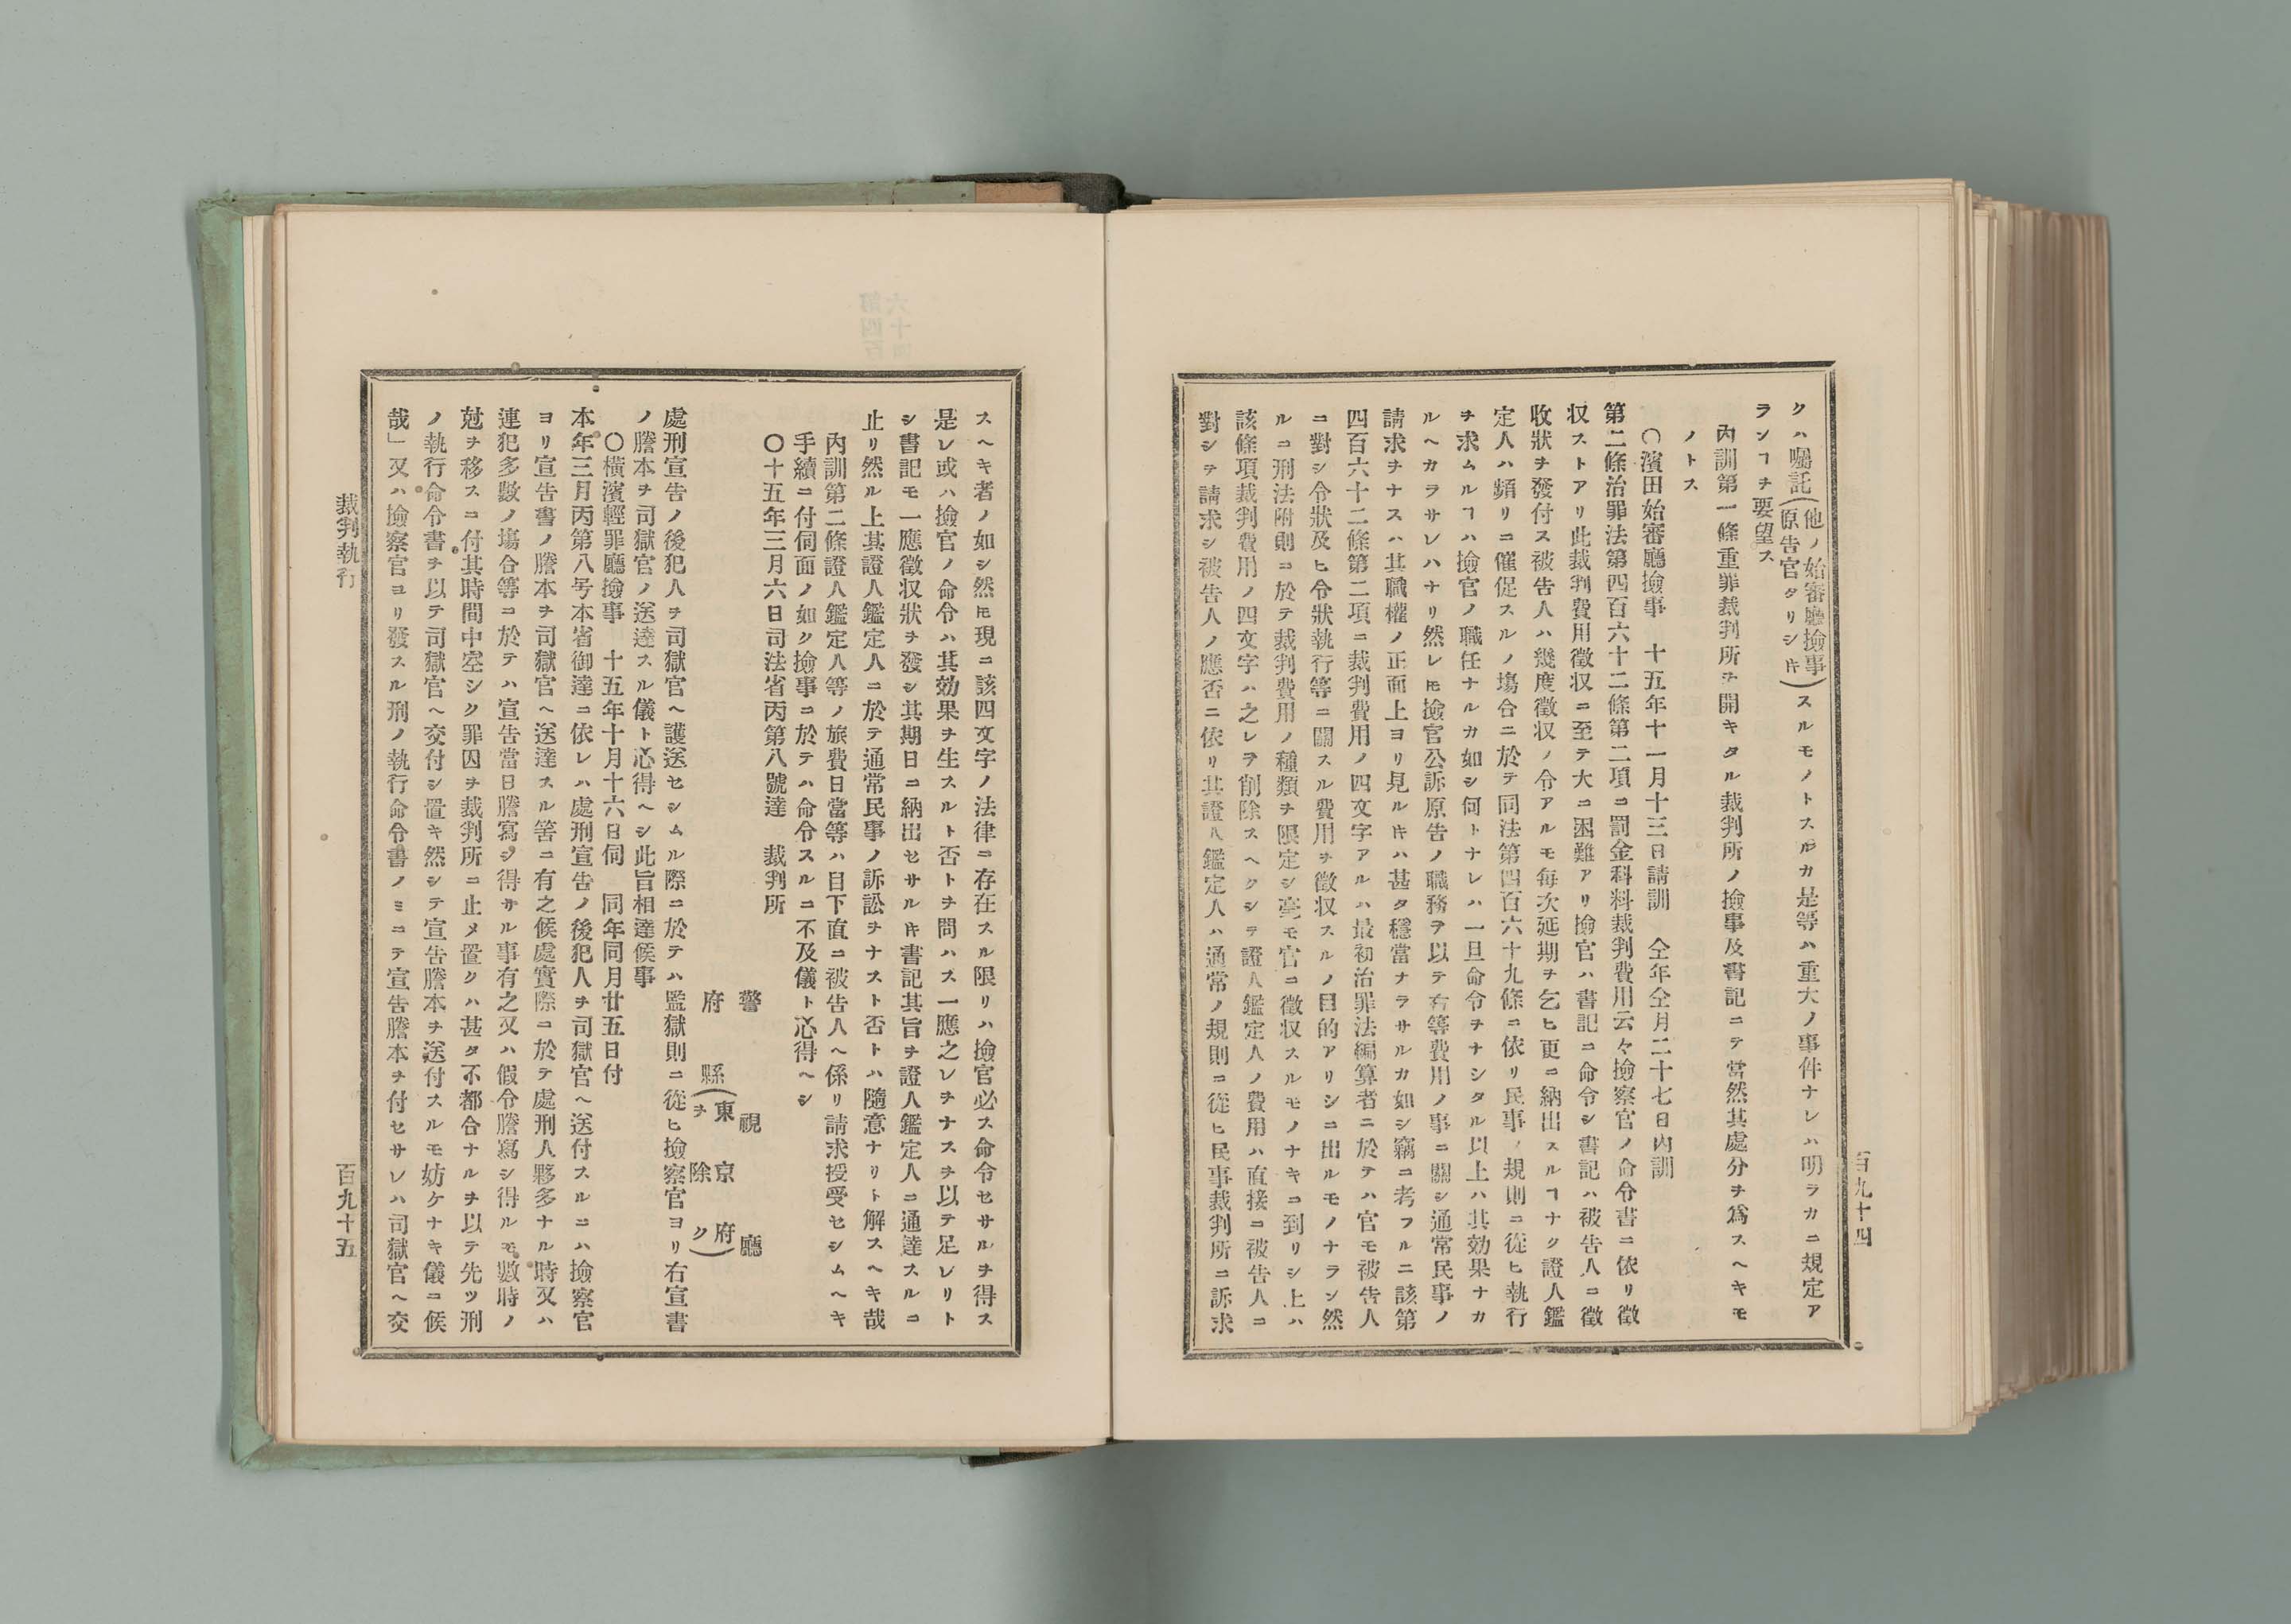 クハ囑託(他ノ始審廳撿事原告官タリシ𪜈)スルモノトスルカ是等ハ重大ノ事件ナレハ明ラカニ規定ア
ランヿヲ要望ス
內訓第一條重罪裁判所ヲ開キタル裁判所ノ撿事及書記ニテ當然其處分ヲ爲スヘキモ
ノトス
〇濱田始審廳撿事　十五年十一月十三日請訓　仝年仝月二十七日內訓
第二條治罪法第四百六十二條第二項ニ罰金科料裁判費用云々撿察官ノ命令書ニ依リ徵
収ストアリ此裁判費用徵収ニ至テ大ニ困難アリ撿官ハ書記ニ命令シ書記ハ被告人ニ徵
收狀ヲ發付ス被告人ハ幾度徵収ノ令アルモ每次延期ヲ乞ヒ更ニ納出スルヿナク證人鑑
定人ハ頻リニ催促スルノ塲合ニ於テ同法第四百六十九條ニ依リ民事ノ規則ニ從ヒ執行
ヲ求ムルヿハ撿官ノ職任ナルカ如シ何トナレハ一旦命令ヲナシタル以上ハ其効果ナカ
ルヘカラサレハナリ然レ𪜈撿官公訴原告ノ職務ヲ以テ右等費用ノ事ニ關シ通常民事ノ
請求ヲナスハ其職權ノ正面上ヨリ見ル𪜈ハ甚タ穩當ナラサルカ如シ竊ニ考フルニ該第
四百六十二條第二項ニ裁判費用ノ四文字アルハ最初治罪法編算者ニ於テハ官モ被告人
ニ對シ令狀及ヒ令狀執行等ニ關スル費用ヲ徵収スルノ目的アリシニ出ルモノナラン然
ルニ刑法附則ニ於テ裁判費用ノ種類ヲ限定シ毫モ官ニ徵収スルモノナキニ到リシ上ハ
該條項裁判費用ノ四文字ハ之レヲ削除スヘクシテ證人鑑定人ノ費用ハ直接ニ被告人ニ
對シテ請求シ被告人ノ應否ニ依リ其證人鑑定人ハ通常ノ規則ニ從ヒ民事裁判所ニ訴求
百九十四
スヘキ者ノ如シ然𪜈現ニ該四文字ノ法律ニ存在スル限リハ撿官必ス命令セサルヲ得ス
是レ或ハ撿官ノ命令ハ其効果ヲ生スルト否トヲ問ハス一應之レヲナスヲ以テ足レリト
シ書記モ一應徵収狀ヲ發シ其期日ニ納出セサル𪜈書記其旨ヲ證人鑑定人ニ通達スルニ
止リ然ル上其證人鑑定人ニ於テ通常民事ノ訴訟ヲナスト否トハ隨意ナリト解スヘキ哉
內訓第二條證人鑑定人等ノ旅費日當等ハ目下直ニ被告人ヘ係リ請求授受セシムヘキ
手續ニ付伺面ノ如ク撿事ニ於テハ命令スルニ不及儀ト心得ヘシ
〇十五年三月六日司法省丙第八號達　裁判所
警視廳
府縣(東京府ヲ除ク)
處刑宣告ノ後犯人ヲ司獄官ヘ護送セシムル際ニ於テハ監獄則ニ從ヒ撿察官ヨリ右宣書
ノ謄本ヲ司獄官ノ送達スル儀ト心得ヘシ此旨相達候事
〇橫濱輕罪廳撿事　十五年十月十六日伺　同年同月廿五日付
本年三月丙第八号本省御達ニ依レハ處刑宣告ノ後犯人ヲ司獄官ヘ送付スルニハ撿察官
ヨリ宣告書ノ謄本ヲ司獄官ヘ送達スル筈ニ有之候處實際ニ於テ處刑人夥多ナル時又ハ
連犯多數ノ塲合等ニ於テハ宣告當日謄寫シ得サル事有之又ハ假令謄寫シ得ルモ數時ノ
尅ヲ移スニ付其時間中空シク罪囚ヲ裁判所ニ止メ置クハ甚タ不都合ナルヲ以テ先ツ刑
ノ執行命令書ヲ以テ司獄官ヘ交付シ置キ然シテ宣告謄本ヲ送付スルモ妨ケナキ儀ニ候
哉」又ハ撿察官ヨリ發スル刑ノ執行命令書ノミニテ宣告謄本ヲ付セサレハ司獄官ヘ交
裁判執行
百九十五